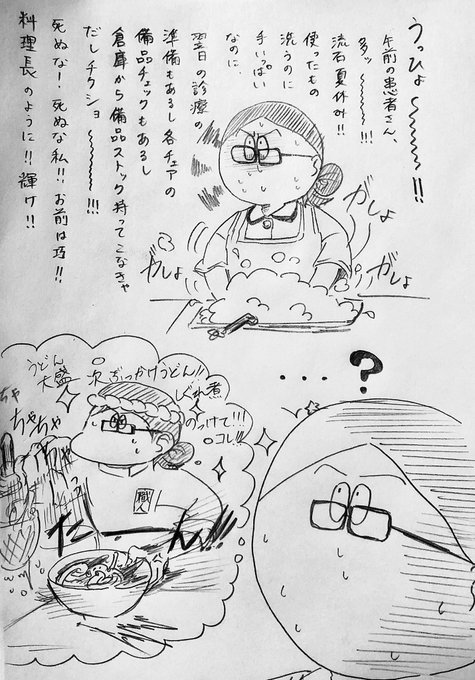 うっひょ〜〜〜!!
午前の患者さん、
多ッ〜〜〜!!!
流石夏休み!!
使ったもの
洗うのに
手いっぱい
なのに、
翌日の診療の
準備もあるし各チェアの
備品チェックもあるし
倉庫から備品ストック持ってこなきゃ
だしチクショ〜〜〜!!!
死ぬな!死ぬな私!!お前は巧!!
料理長のように!!輝け!!
がしょ
がしょ
がしょ
がしょ
うどん
大盛
次ぶっかけうどん!!
しぐれ煮
のっけて!!!
コレ!!
ちゃ
ちゃ
ちゃ
ちゃっ
職人
たーん!!
...?